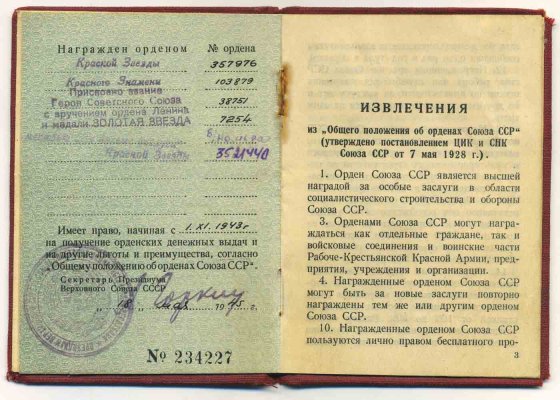 Награжден орденом № ордена
Красной Звезды 357976
Красного Знамени 103879
Присвоено звание
Героя Советского Союза 38751
с вручением ордена Ленина
и медали ЗОЛОТАЯ ЗВЕЗДА 7254
Красной Звезды 3521440
Имеет право, начиная с 1.XI.1943 г
на получение орденских денежных выдач и
на другие льготы и преимущества, согласно
„Общему положению об орденах Союза ССР“.
Секретарь Президиума
Верховного Совета СССР
„18“ мая 1945 г.
№ 234227
ИЗВЛЕЧЕНИЯ
из „Общего положения об орденах Союза ССР“
(утверждено постановлением ЦИК и СНК
Союза ССР от 7 мая 1928 г.).
1. Орден Союза ССР является высшей
наградой за особые заслуги в области
социалистического строительства и обороны
Союза ССР.
3. Орденами Союза ССР могут награ-
ждаться как отдельные граждане, так и
войсковые соединения и воинские части
Рабоче-Крестьянской Красной Армии, пред-
приятия, учреждения и организации.
4. Награжденные орденом Союза ССР
могут быть за новые заслуги повторно
награждены тем же или другим орденом
Союза ССР.
10. Награжденные орденом Союза ССР
пользуются лично правом бесплатного про-
3